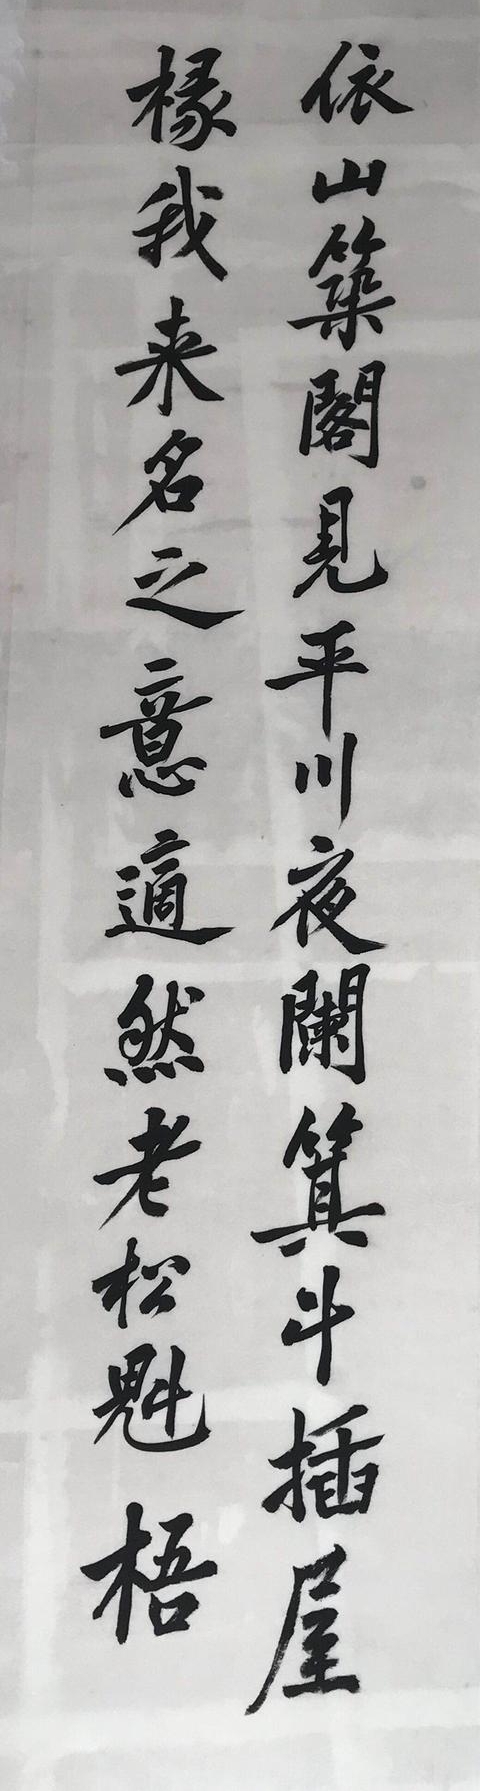 依山築閣見平川夜闌箕斗插屋
椽我来名之意適然老松魁梧